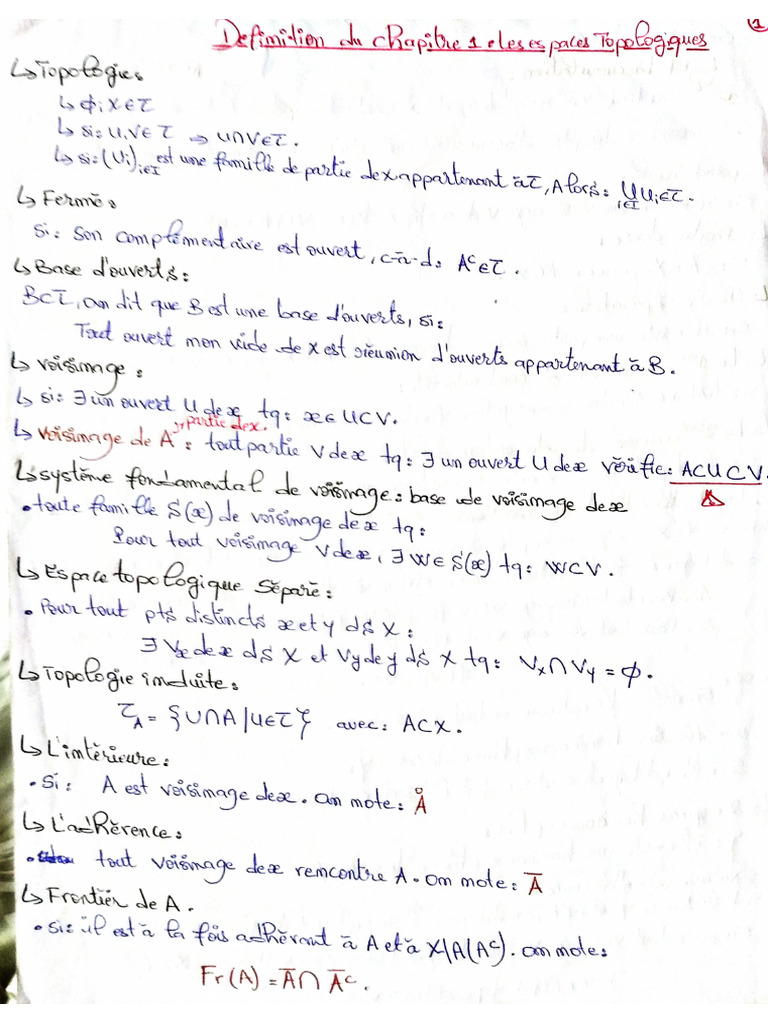 1
Definition du chapitre 1 : les espaces Topologiques
↳ Topologie:
↳ ϕ, X ∈ τ
↳ si: U,V ∈ τ → U∩V ∈ τ.
↳ si: (Ui)i∈I est une famille de partie de x appartenant à τ, Alors: ∪i∈I Ui ∈ τ.
↳ Fermé:
si: Son complémentaire est ouvert, c-à-d: Aᶜ ∈ τ.
↳ Base d'ouverts:
B⊂τ, on dit que B est une base d'ouverts, si:
Tout ouvert non vide de X est réunion d'ouverts appartenant à B.
↳ voisinage:
↳ si: ∃ un ouvert U de x tq: x∈U⊂V.
partie de x.
↳ voisinage de A : tout partie V de x tq: ∃ un ouvert U de x vérifie: A⊂U⊂V.
↳ système fondamental de voisinage: base de voisinage de x
• toute famille S(x) de voisinage de x tq:
Pour tout voisinage V de x, ∃ W∈S(x) tq: W⊂V.
↳ Espace topologique Séparé:
• Pour tout pts distincts x et y ds X:
∃ Vx de x ds X et Vy de y ds X tq: Vx∩Vy = ϕ.
↳ Topologie induite:
τA = {U∩A | U∈τ} avec: A⊂X.
↳ L'intérieure:
• Si: A est voisinage de x. on note: Å
↳ L'adhérence:
• tout voisinage de x rencontre A. On note: A̅
↳ Frontièr de A.
• Si: il est à la fois adhérant à A et à X\A(Aᶜ). on note:
Fr(A) = A̅ ∩ A̅ᶜ.